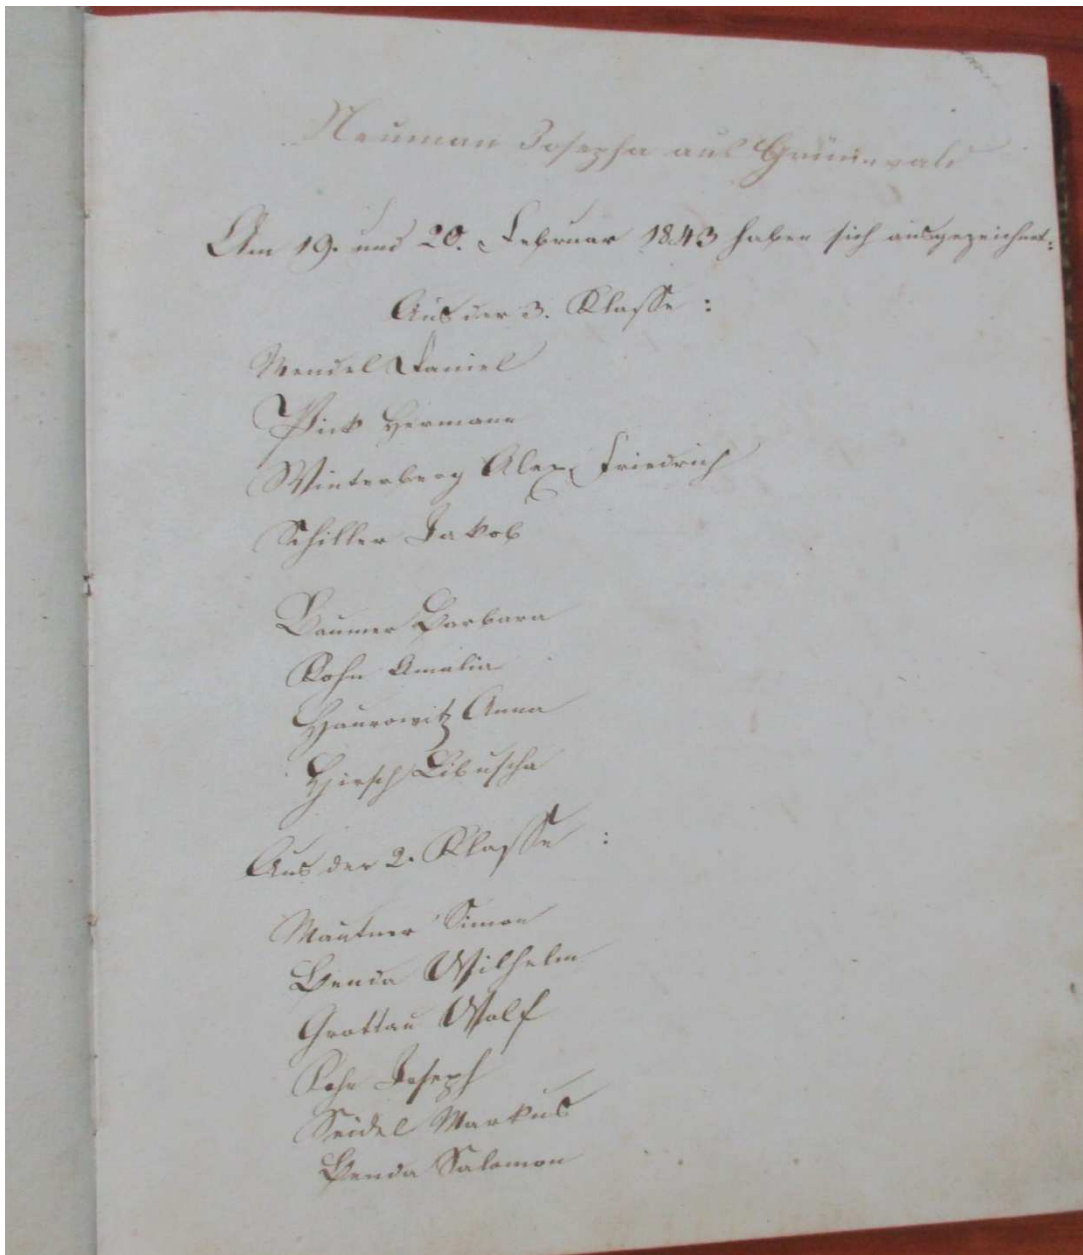 Neuman Josepha aus Grünwald
Am 19. und 20. Februar 1843 haben sich ausgezeichnet:
Aus der 3. Klasse:
Mendel Daniel
Pick Hermann
Winterberg Alex. Friedrich
Schiller Jakob
Baumer Barbara
Kohn Amalia
Haurowitz Anna
Hirsch Libuscha
Aus der 2. Klasse:
Mautner Simon
Benda Wilhelm
Grottau Wolf
Kohn Joseph
Seidel Markus
Benda Salomon